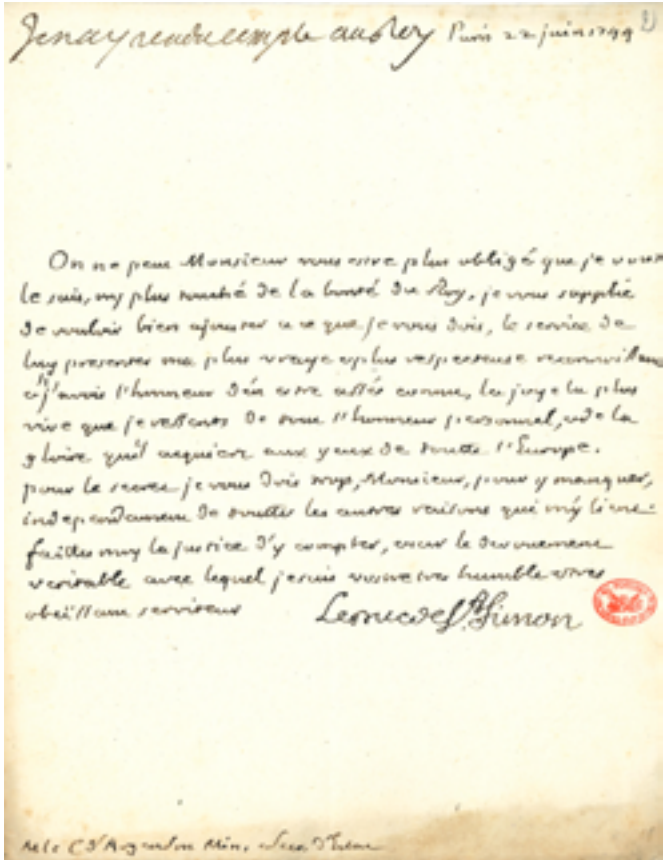 J'en ay rendu compte au Roy Paris 22 juin 1744
On ne peut Monsieur vous estre plus obligé que je vous
le suis, ny plus touché de la bonté du Roy, je vous supplie
de vouloir bien ajouster a ce que je vous dois, le service de
luy presenter ma plus vraye et plus respectueuse reconnoissance
et si j'avois l'honneur d'en estre assés connu, la joye la plus
vive que je ressents de tout l'honneur personnel, et de la
gloire qu'il acquiert aux yeux de toutte l'Europe.
pour le secret je vous dois trop, Monsieur, pour y manquer,
independament de touttes les autres raisons qui m'y lient.
faittes moy la justice d'y compter, et sur le devouement
veritable avec lequel je suis vostre tres humble et tres
obeïssant serviteur Le Duc de St. Simon
M le C d'Argenson Min. et Secr d'Estat